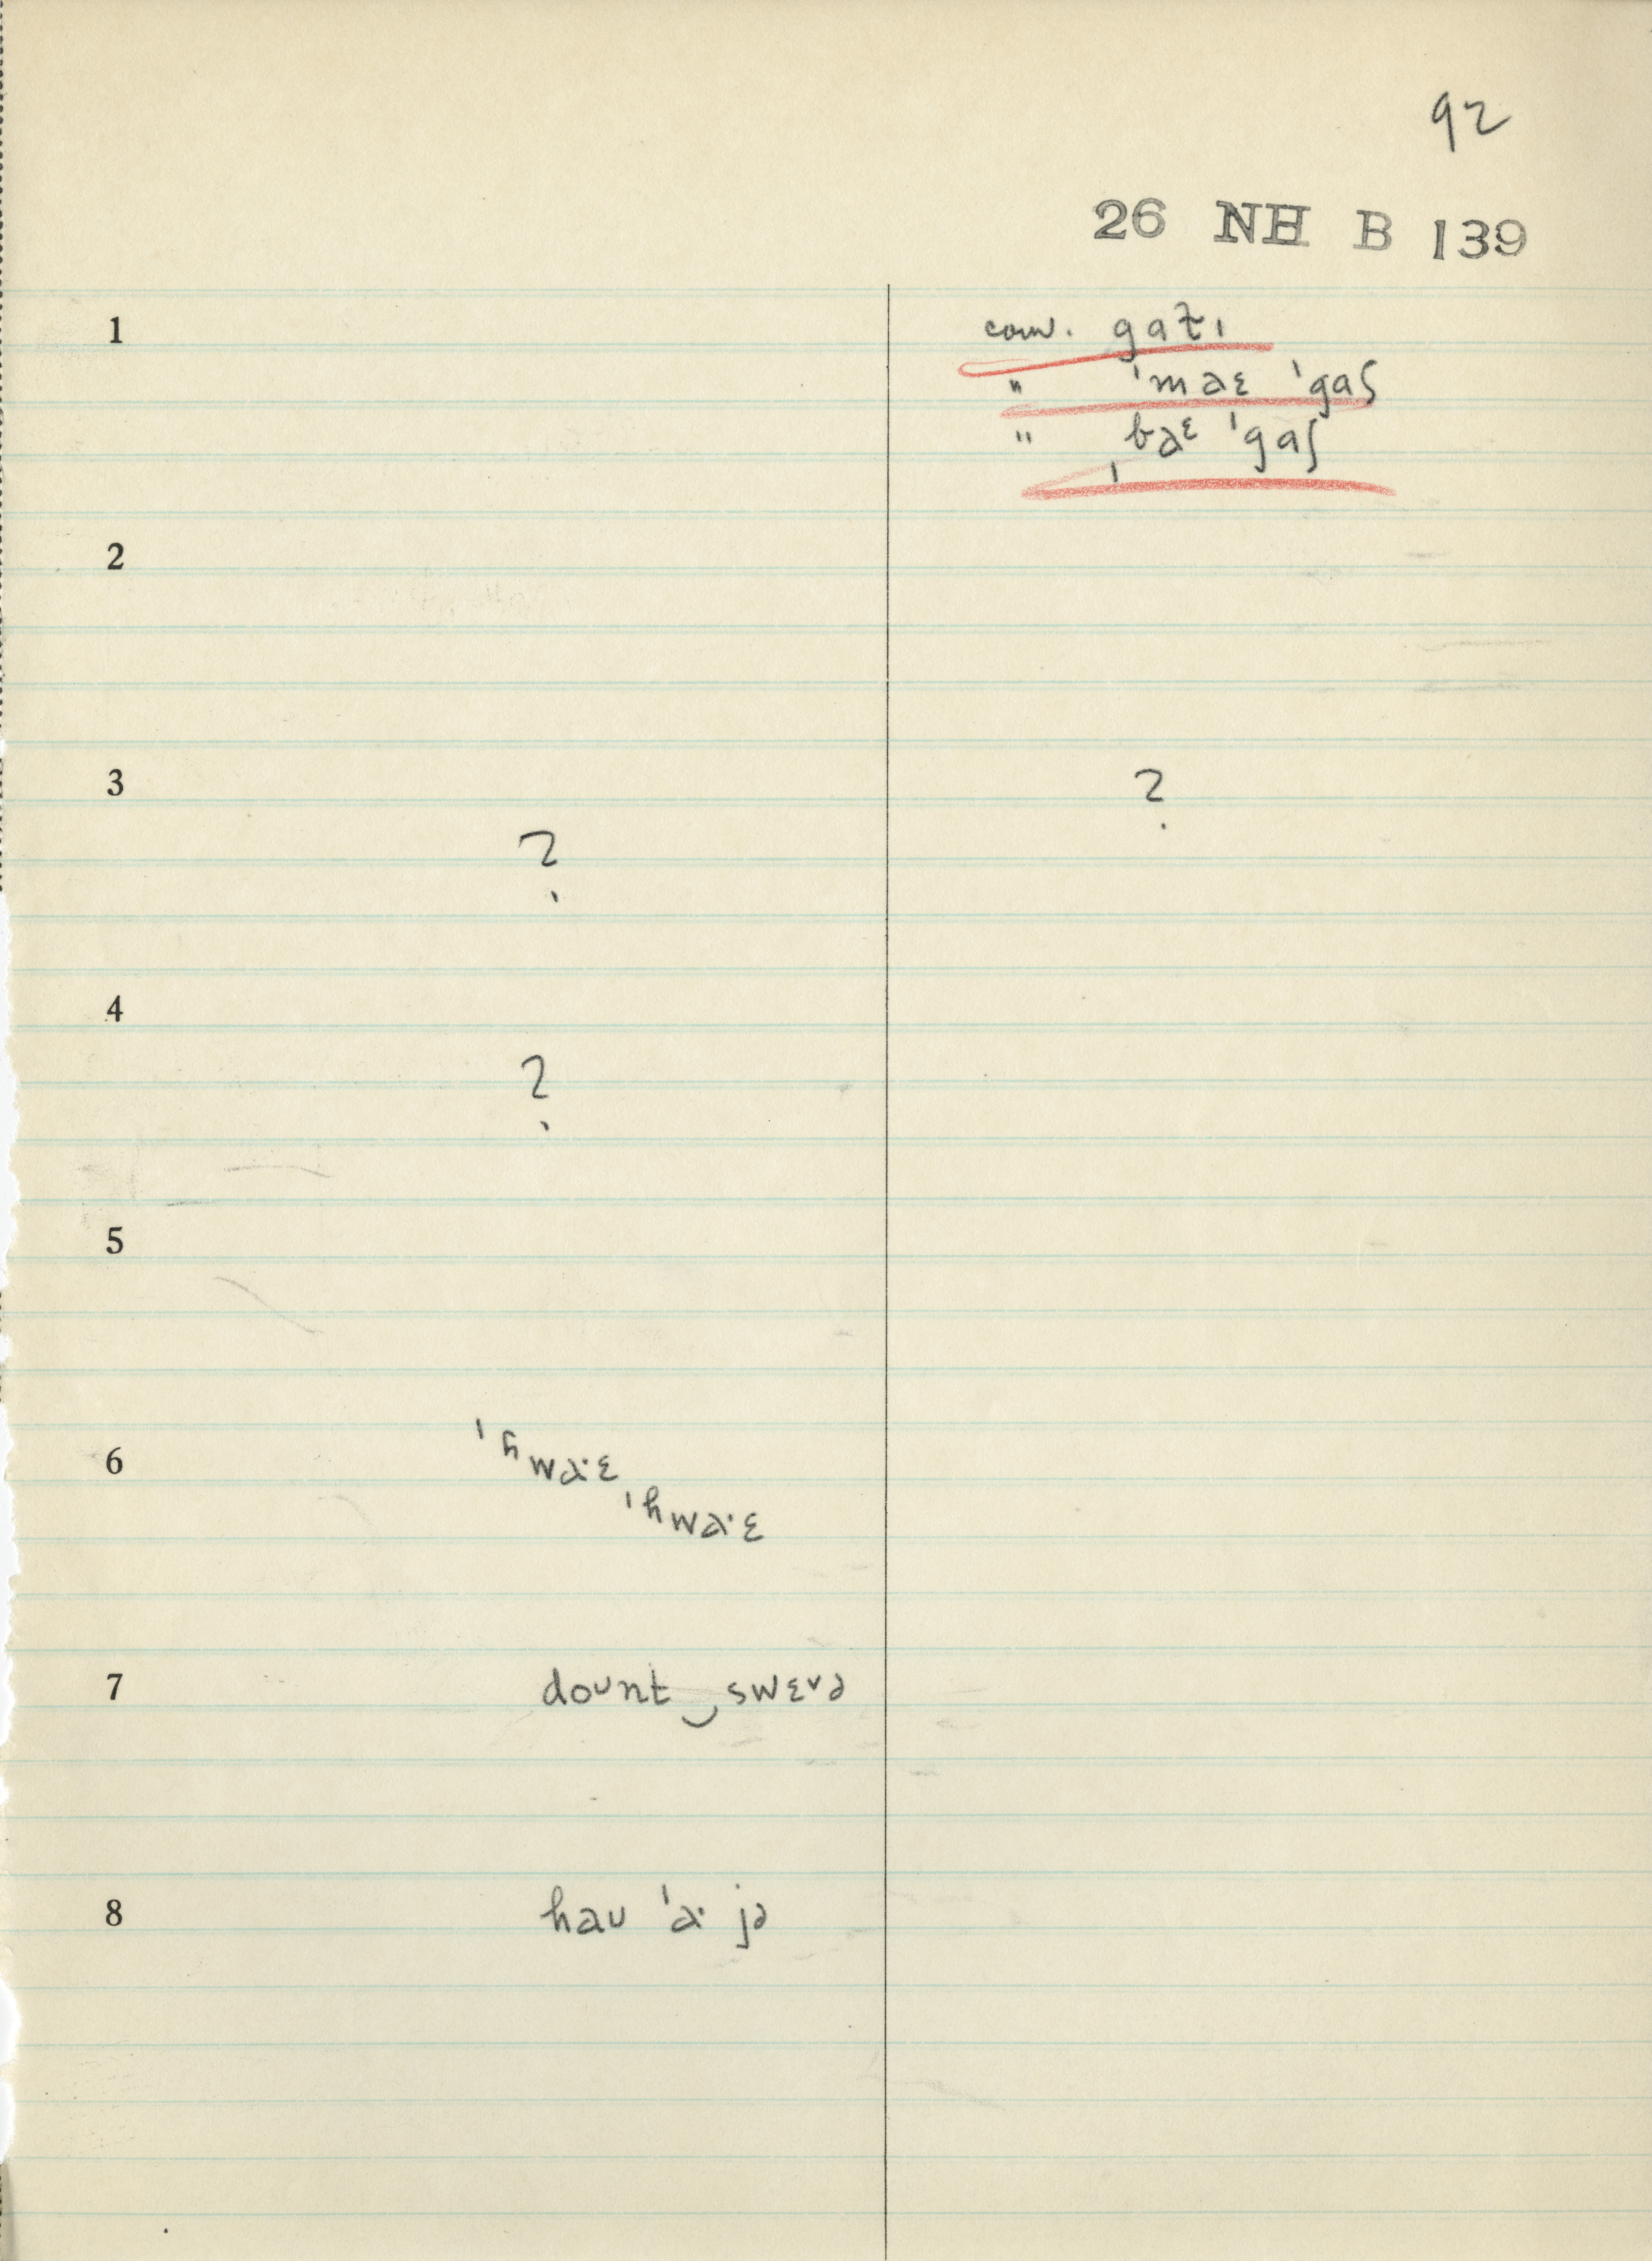 92
26 NH B 139
1 conv. gat̬ɪ
" ˈmaɛ ˈgaʃ
" ˌbaᵋ ˈgaʃ
2
3 ?
?
4
?
5
6 ˈhwa·ɛ
ˈhwa·ɛ
7 doᴜnt‿swɛᴠə
8 haᴜ ˈa· jə